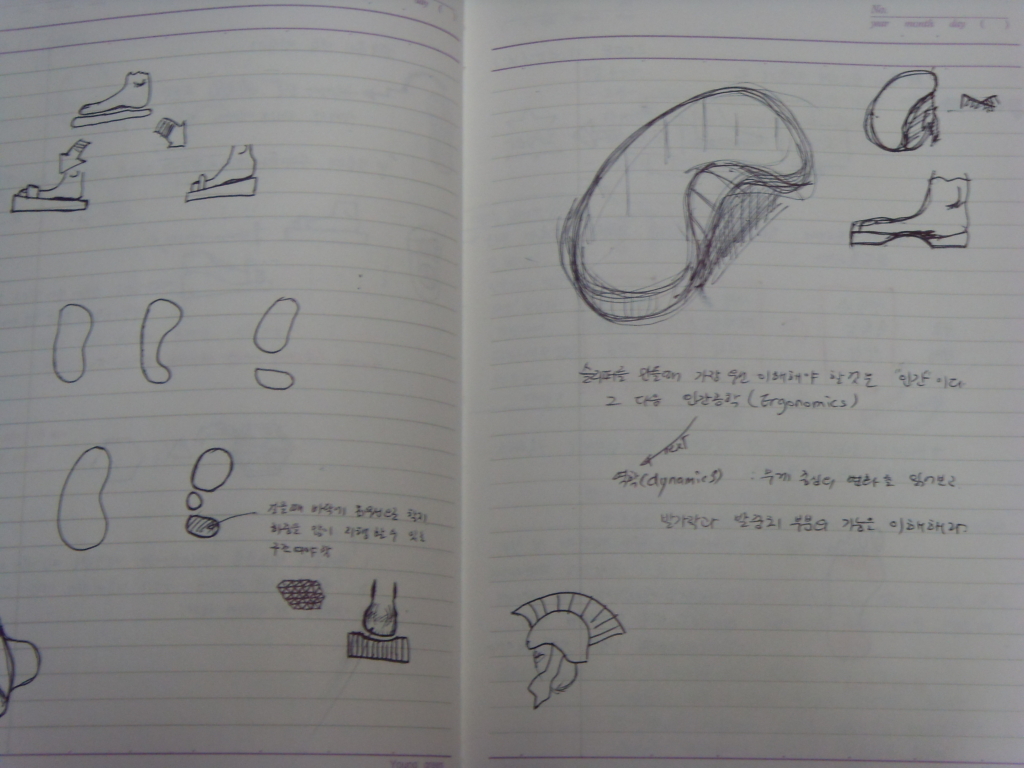 걸을때
하중을 많이 지탱 할 수 있는
구조여야 함
No.
year month day ( )
슬리퍼를 만들때 가장 우선 이해해야 할 것은 "인간"이다
그 다음 인간공학 (Ergonomics)
역학(dynamics) : 무게 중심의 변화를 읽어보고
발가락과 발중지 부분의 기능을 이해해라